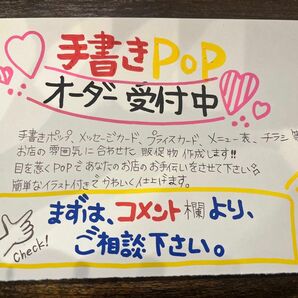 手書きPOP
オーダー受付中
手書きポップ、メッセージカード、プライスカード、メニュー表、チラシ 等
お店の雰囲気に合わせた販促物作成します!!
目を惹くPOPであなたのお店のお手伝いをさせて下さい
簡単なイラスト付きでかわいく仕上げます。
まずは、コメント欄より、
Check!
ご相談下さい。